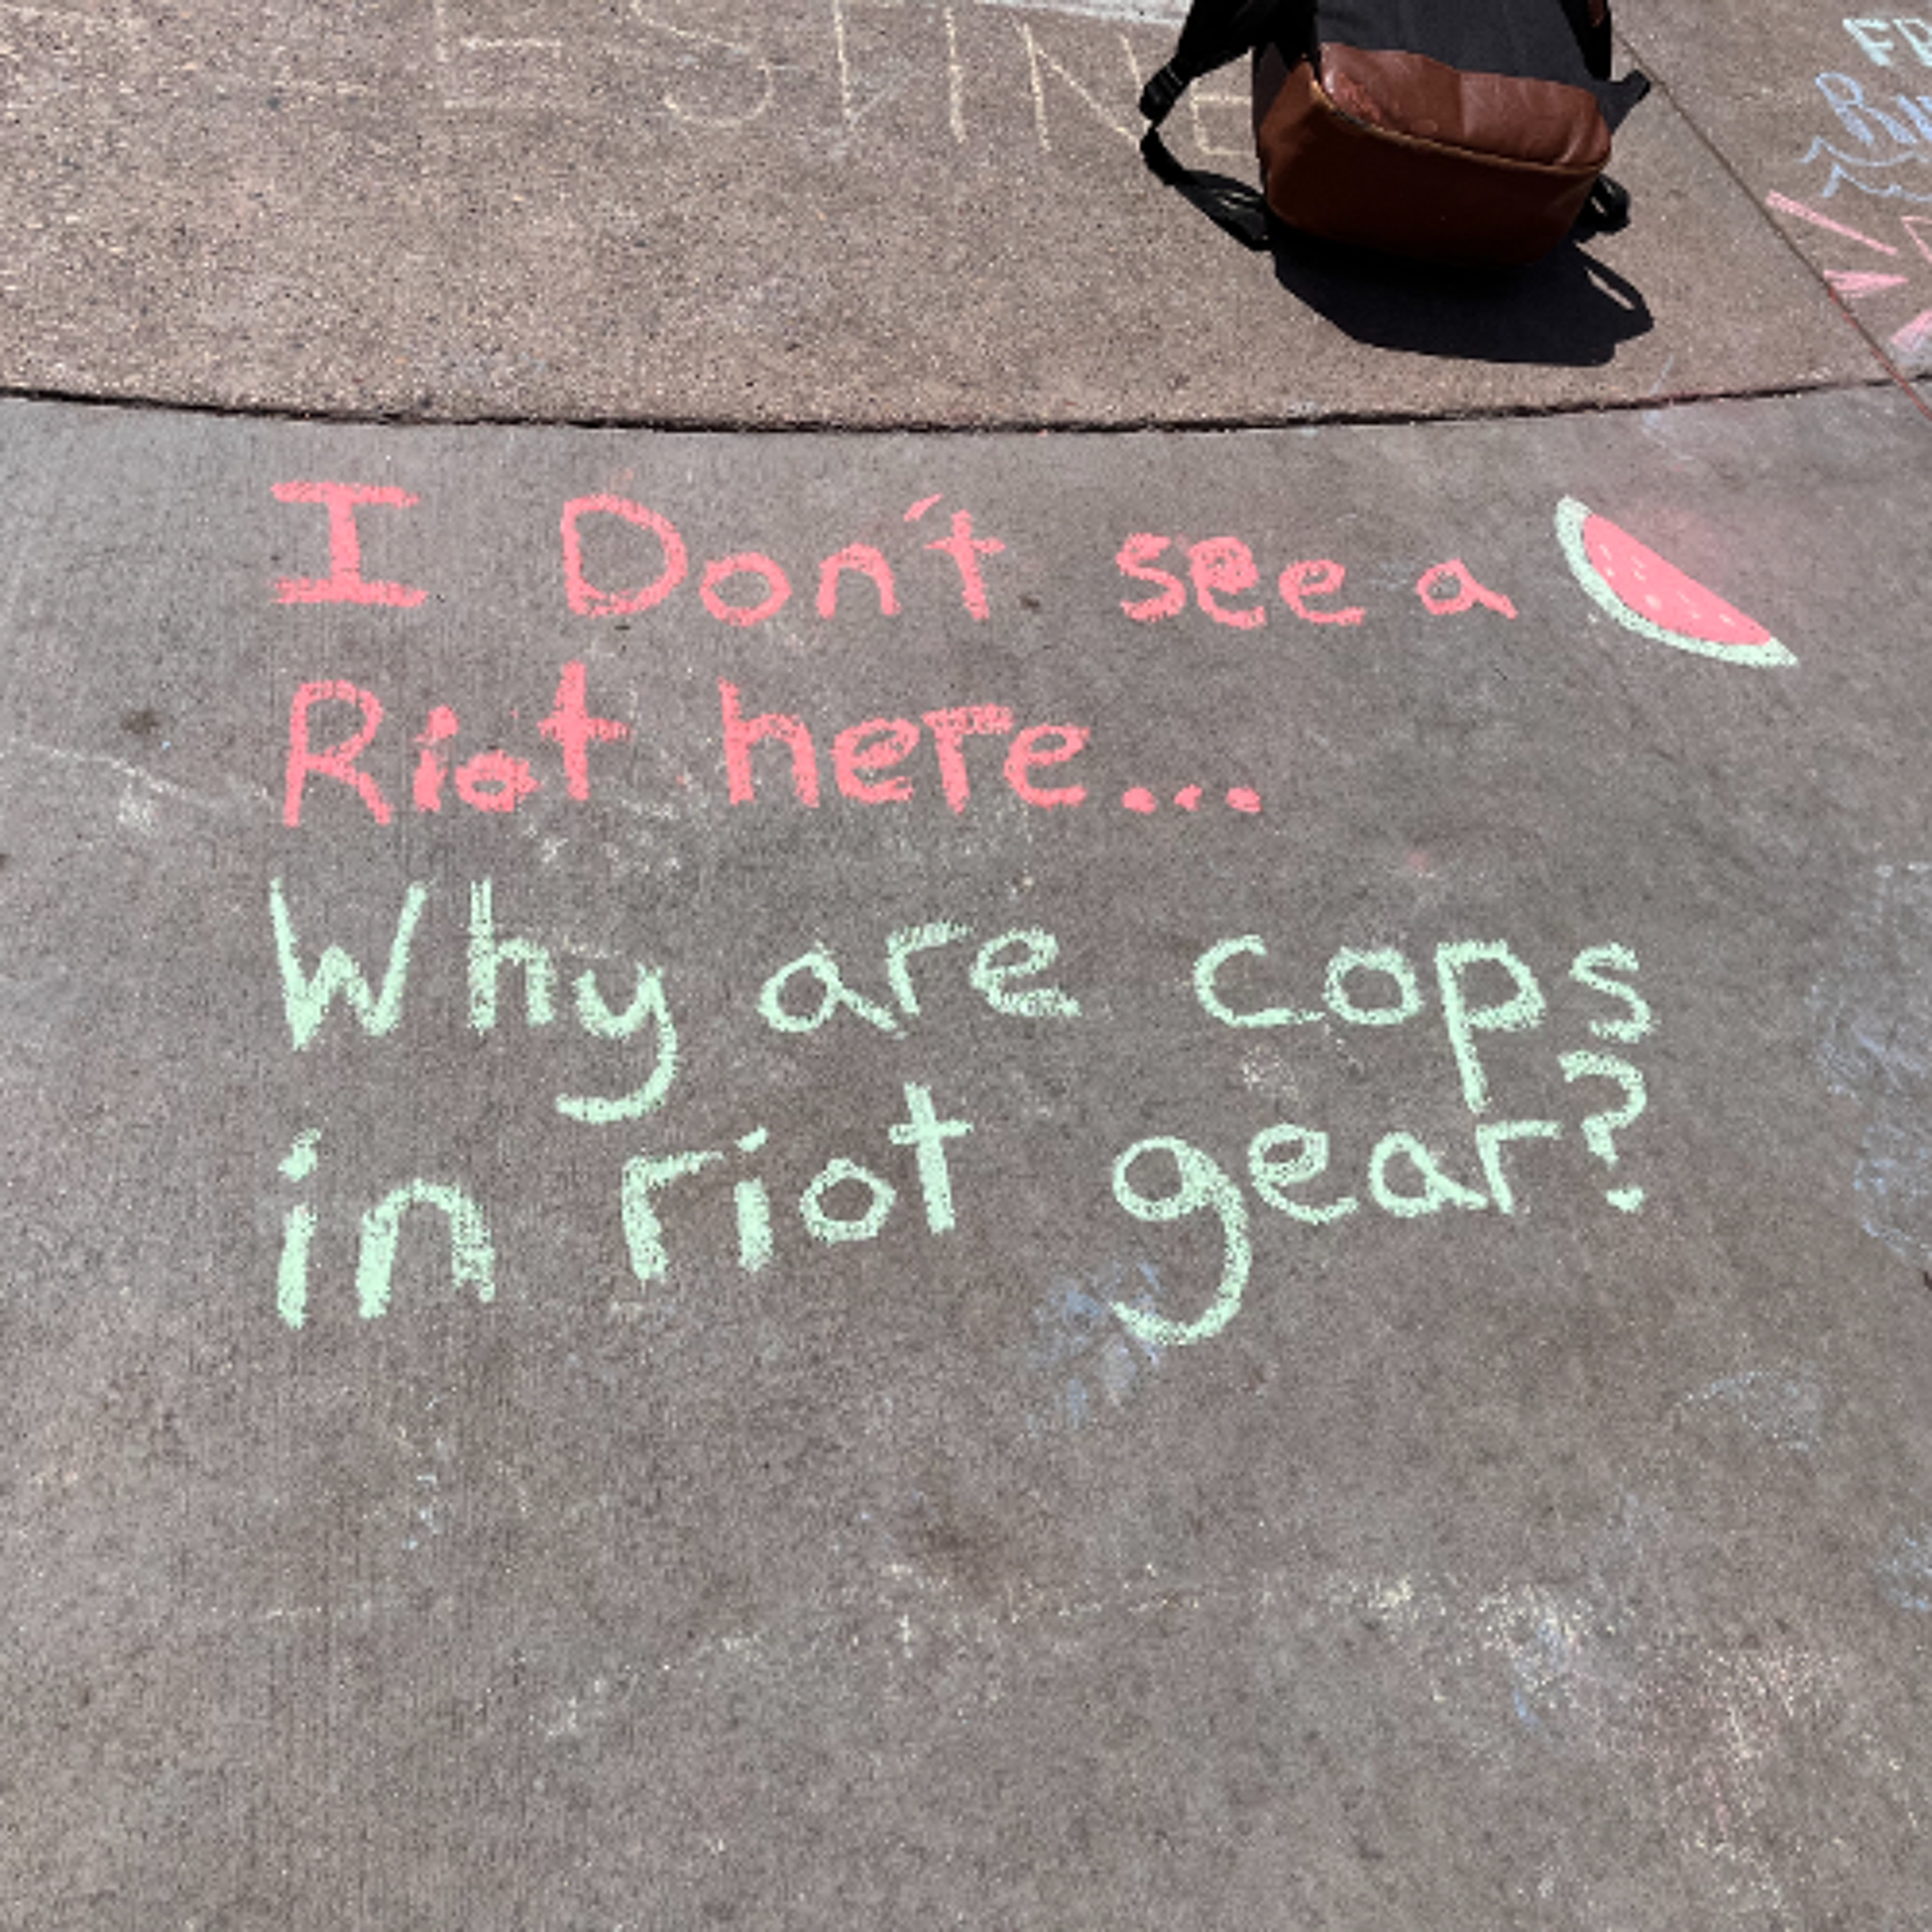 ESTINE
I Don't see a
Riot here...
Why are cops
in riot gear?